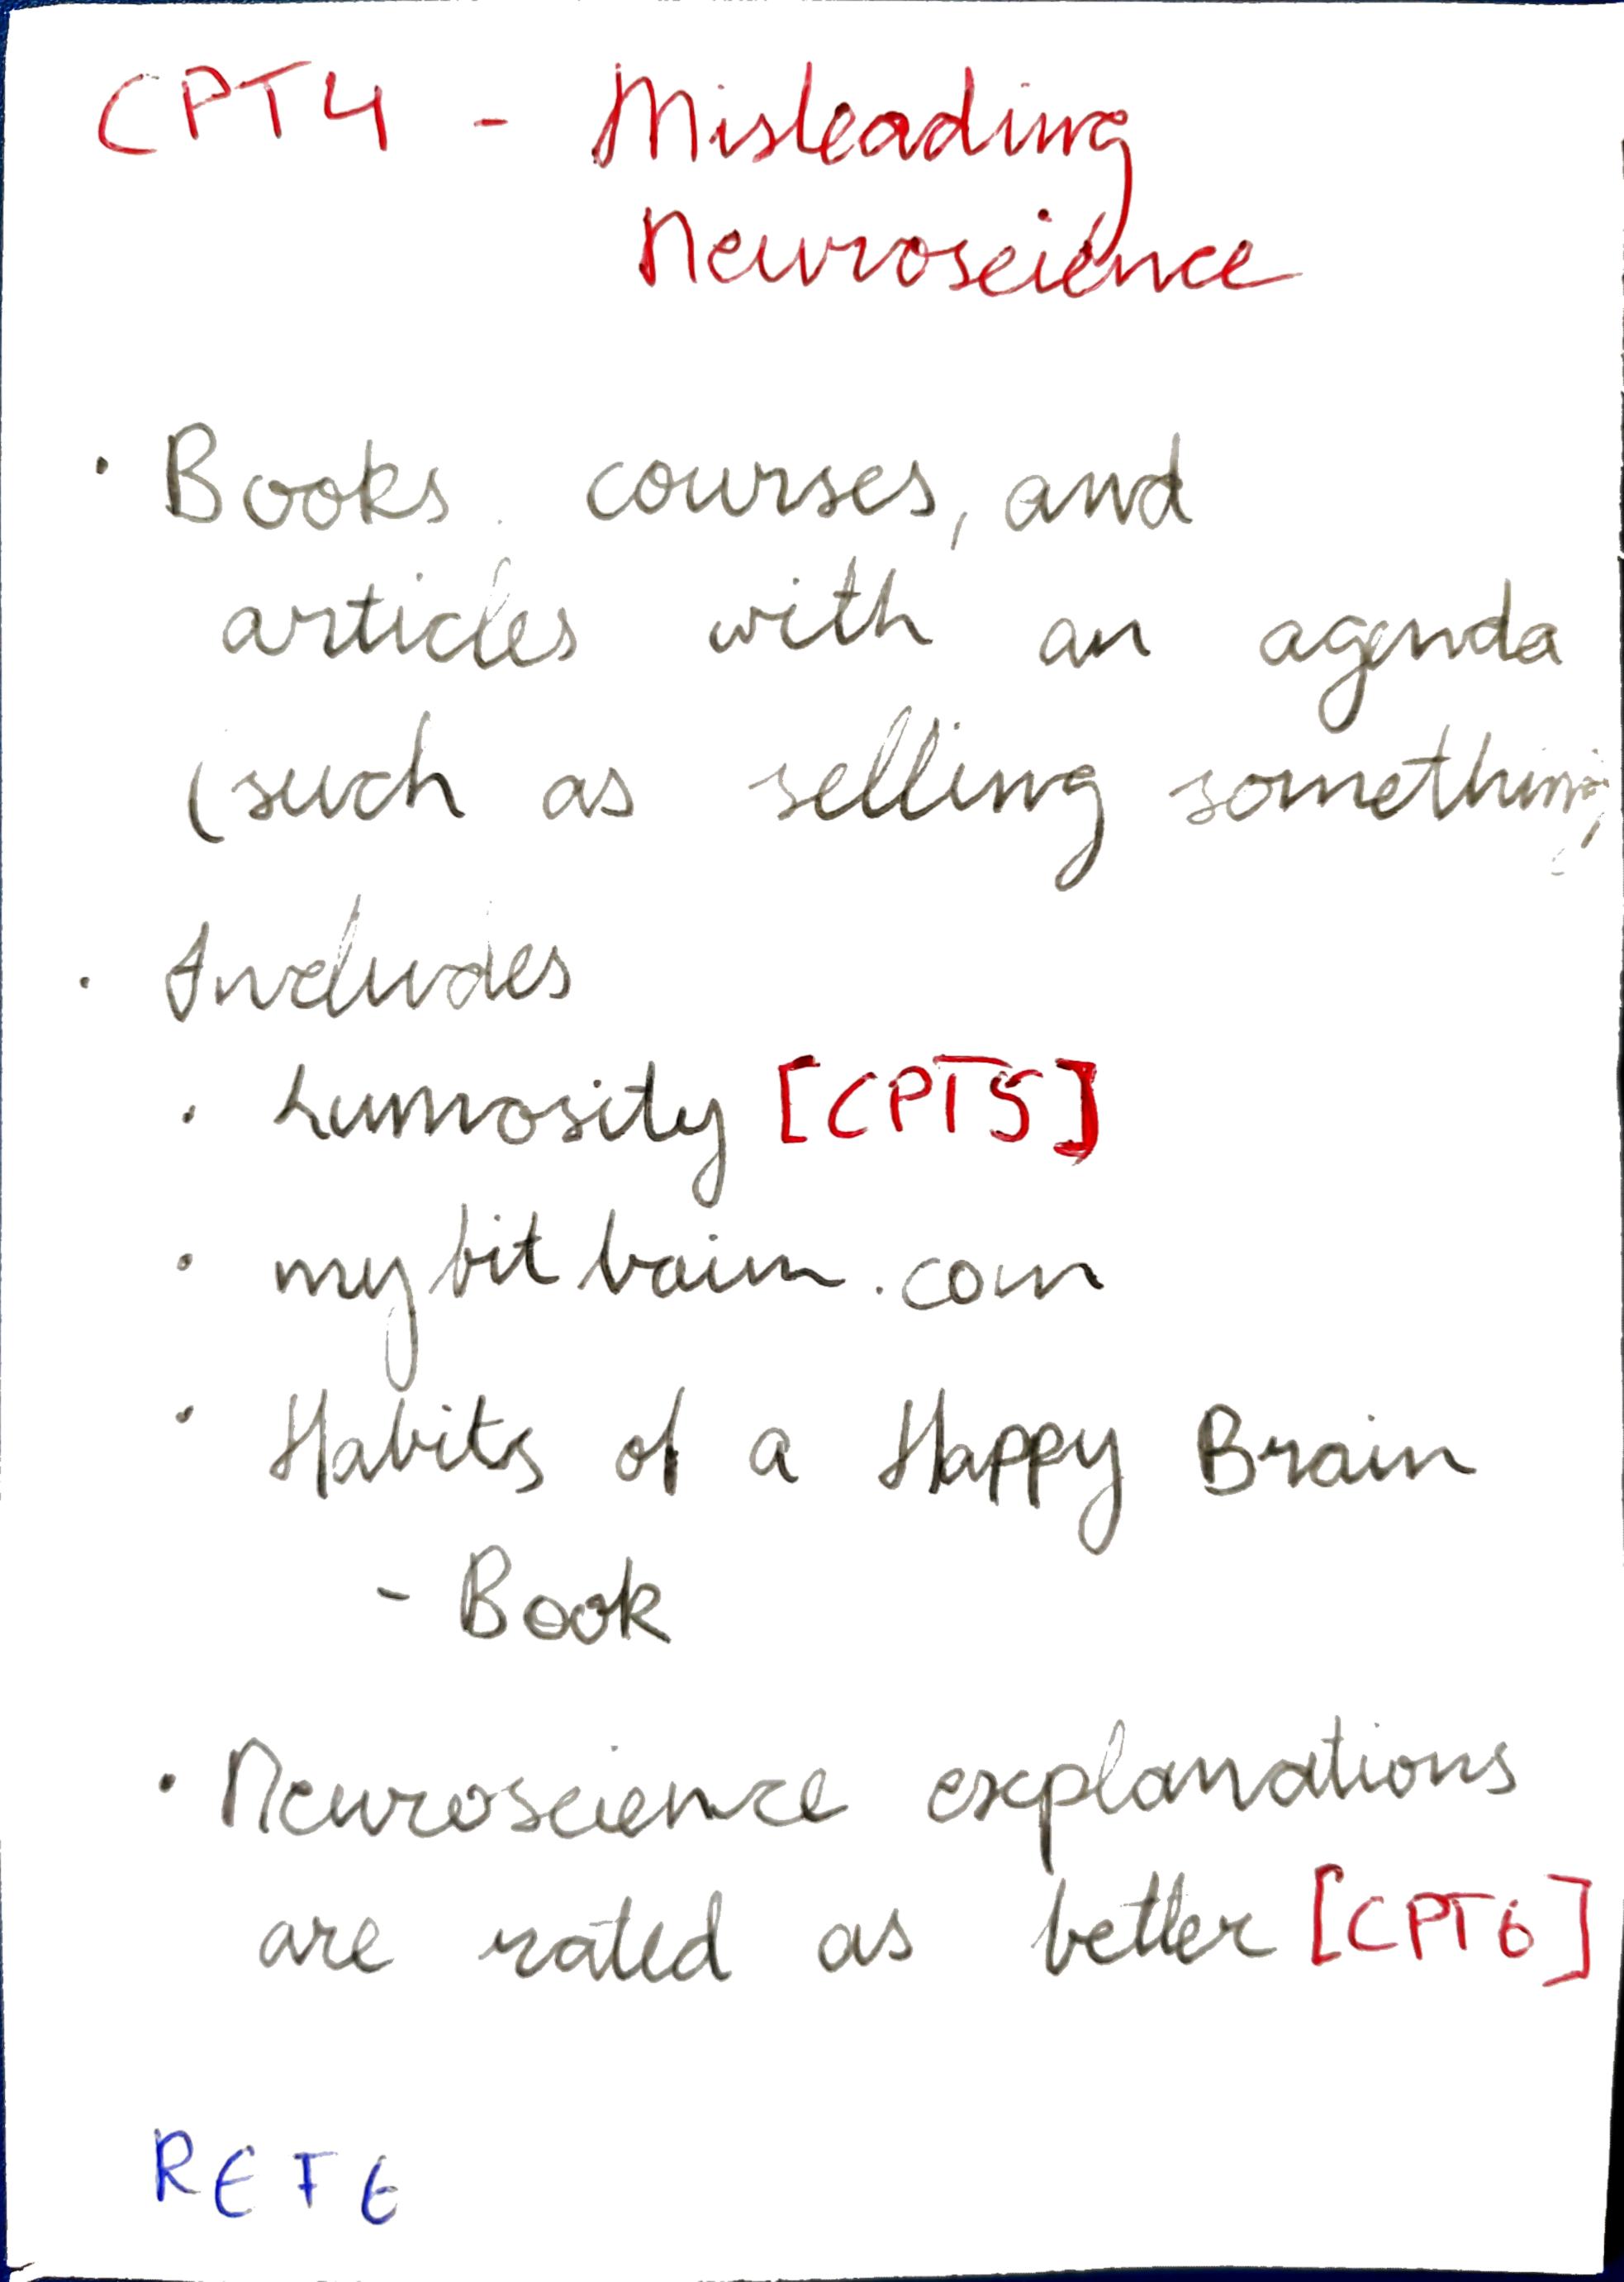 CPT4 - Misleading
Neuroscience
· Books, courses, and
articles with an agenda
(such as selling something)
· Includes
· Lumosity [CPT5]
· mybitbain.com
· Habits of a Happy Brain
- Book
· Neuroscience explanations
are rated as better [CPT6]
REF6